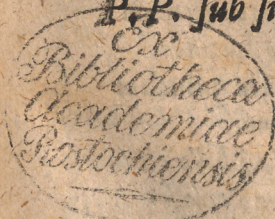 P. P. sub
Ex
Bibliotheca
Academiae
Rostochiensis